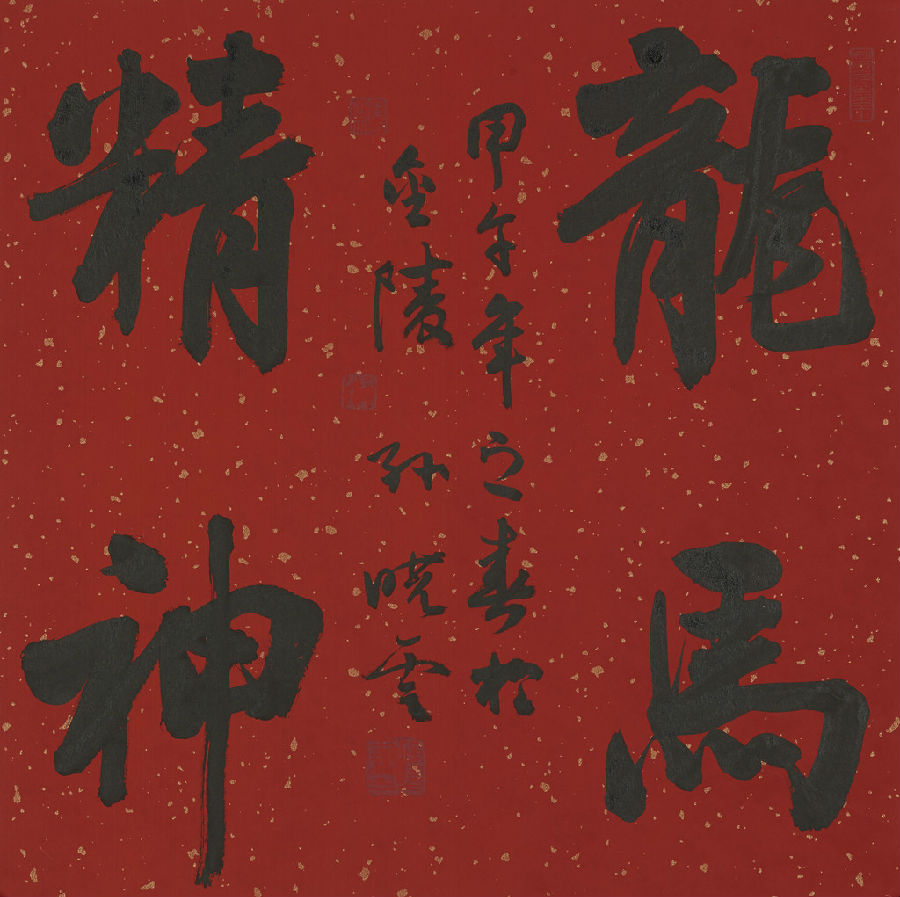 龍馬
精神
甲午年之春於
金陵孙晓云